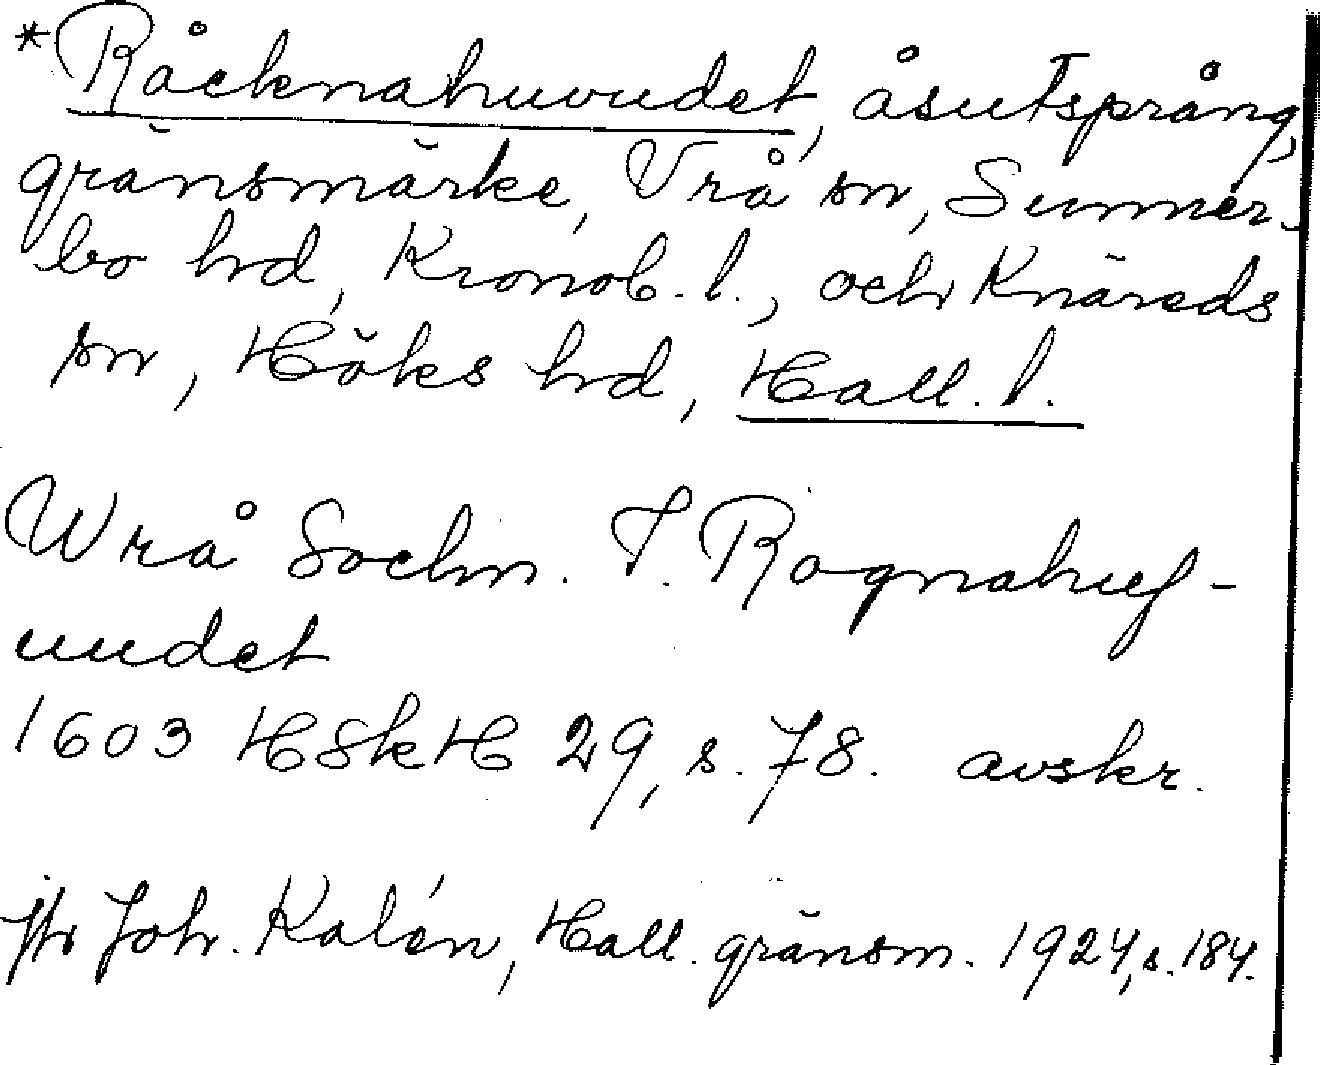 *Råcknahuvudet, åsutsprång,
gränsmärke, Vrå sn, Sunner-
bo hd, Kronob. l., och Knäreds
sn, Höks hd, Hall. l.
Wrå Sochn. T. Rognahuf-
uudet
1603 HSkH 29, s. 78. avskr.
jfr Joh. Kalén, Hall. gränsm. 1924, s. 184.